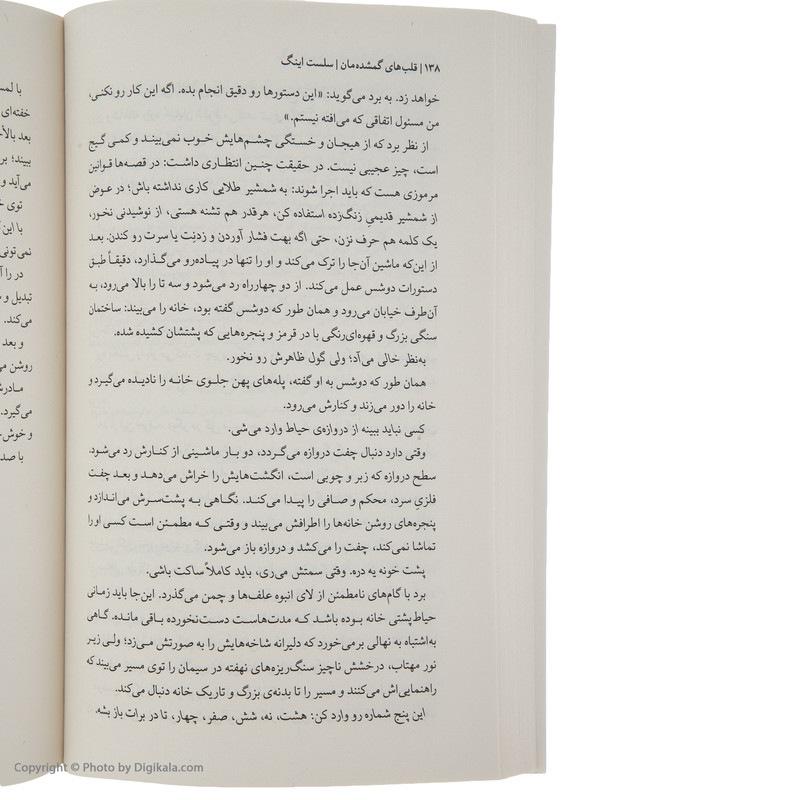 ۱۳۸ | قلب‌های گمشده‌مان | سلست اینگ
خواهد زد. به برد می‌گوید: «این دستورها رو دقیق انجام بده. اگه این کار رو نکنی،
من مسئول اتفاقی که می‌افته نیستم.»
از نظر برد که از هیجان و خستگی چشم‌هایش خوب نمی‌بیند و کمی گیج
است، چیز عجیبی نیست. در حقیقت چنین انتظاری داشت: در قصه‌ها قوانین
مرموزی هست که باید اجرا شوند: به شمشیر طلایی کاری نداشته باش؛ در عوض
از شمشیر قدیمیِ زنگ‌زده استفاده کن، هرقدر هم تشنه هستی، از نوشیدنی نخور،
یک کلمه هم حرف نزن، حتی اگه بهت فشار آوردن و زدنِت یا سرت رو کندن. بعد
از این‌که ماشین آن‌جا را ترک می‌کند و او را تنها در پیاده‌رو می‌گذارد، دقیقاً طبق
دستورات دوشس عمل می‌کند. از دو چهارراه رد می‌شود و سه تا را بالا می‌رود، به
آن‌طرف خیابان می‌رود و همان طور که دوشس گفته بود، خانه را می‌بیند: ساختمان
سنگی بزرگ و قهوه‌ای‌رنگی با در قرمز و پنجره‌هایی که پشتشان کشیده شده.
به‌نظر خالی می‌آد؛ ولی گول ظاهرش رو نخور.
همان طور که دوشس به او گفته، پله‌های پهن جلوی خانه را نادیده می‌گیرد و
خانه را دور می‌زند و کنارش می‌رود.
کسی نباید ببینه از دروازه‌ی حیاط وارد می‌شی.
وقتی دارد دنبال چفت دروازه می‌گردد، دو بار ماشینی از کنارش رد می‌شود.
سطح دروازه که زبر و چوبی است، انگشت‌هایش را خراش می‌دهد و بعد چفت
فلزیِ سرد، محکم و صافی را پیدا می‌کند. نگاهی به پشت‌سرش می‌اندازد و
پنجره‌های روشن خانه‌ها را اطرافش می‌بیند و وقتی که مطمئن است کسی او را
تماشا نمی‌کند، چفت را می‌کشد و دروازه باز می‌شود.
پشت خونه یه دره. وقتی سمتش می‌ری، باید کاملاً ساکت باشی.
برد با گام‌های نامطمئن از لای انبوه علف‌ها و چمن می‌گذرد. این‌جا باید زمانی
حیاط‌پشتی خانه بوده باشد که مدت‌هاست دست‌نخورده باقی مانده. گاهی
به‌اشتباه به نهالی برمی‌خورد که دلیرانه شاخه‌هایش را به صورتش می‌زد؛ ولی زیر
نور مهتاب، درخشش ناچیز سنگ‌ریزه‌های نهفته در سیمان را توی مسیر می‌بیند که
راهنمایی‌اش می‌کنند و مسیر را تا بدنه‌ی بزرگ و تاریک خانه دنبال می‌کند.
این پنج شماره رو وارد کن: هشت، نه، شش، صفر، چهار، تا در برات باز بشه.
با لمس
خفته‌ای
بعد بالأخ
ببیند؛ بر
می‌آید و
توی خ
با این‌ک
نمی‌تونی
در را آ
تبدیل و
می‌کند.
و بعد
روشن می
مادرش
می‌گیرد.
و خوش.
با صد
Copyright © Photo by Digikala.com